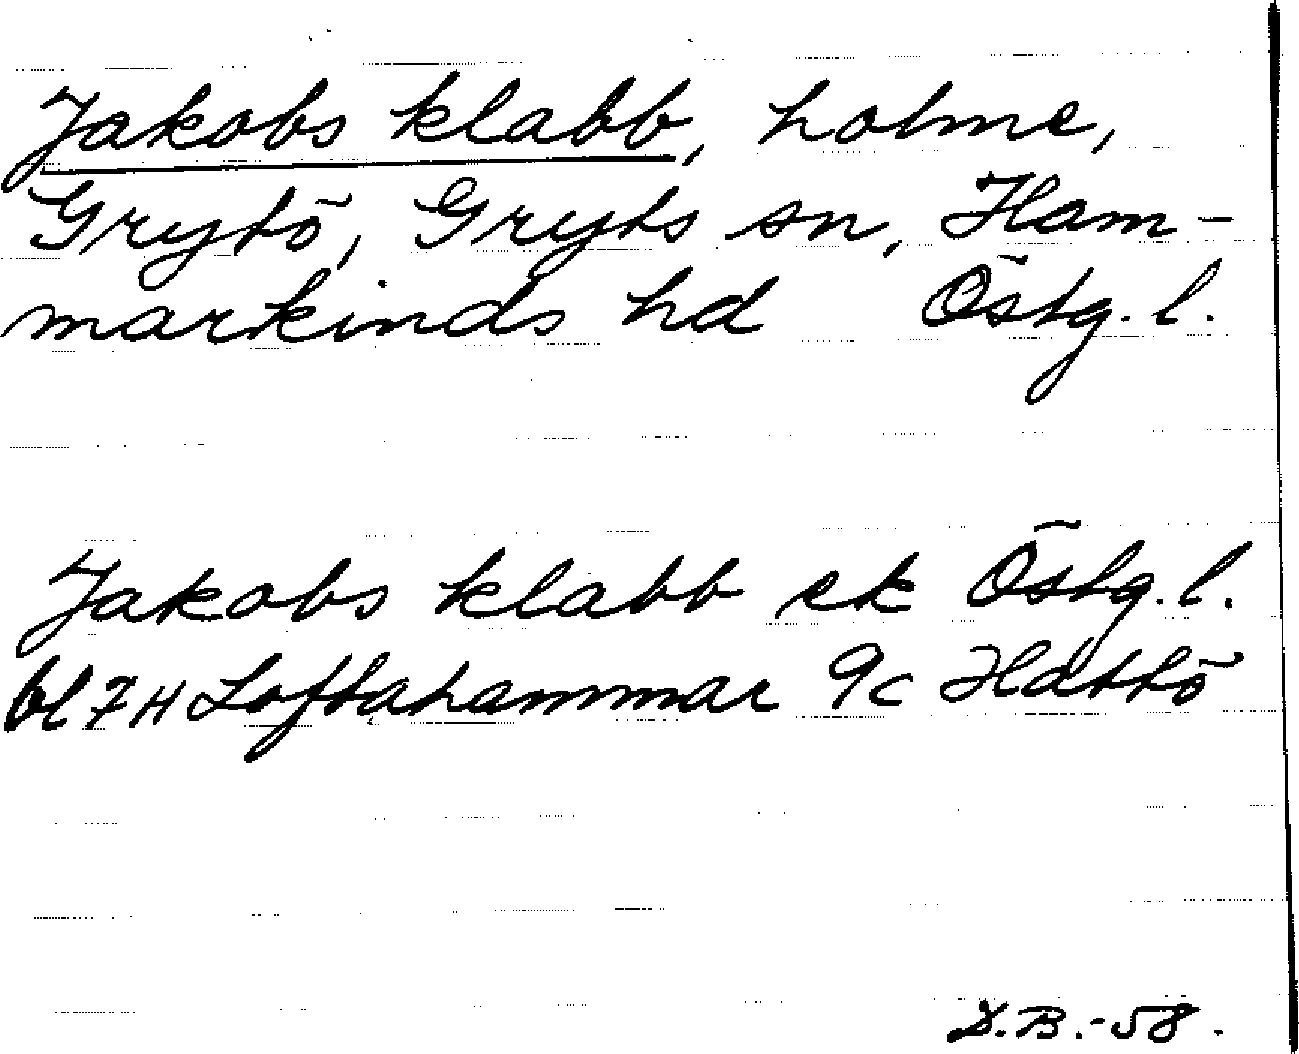 Jakobs klabb, holme,
Grytö, Gryts sn, Ham-
markinds hd Östg. l.
Jakobs klabb ek Östg. l.
bl 7H Loftahammar 9c Håttö
D.B.-58.